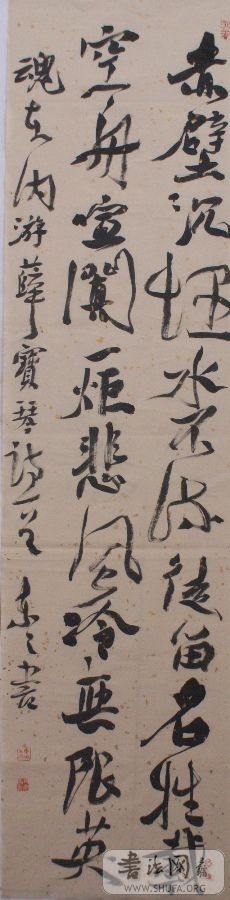 赤壁沉埋水不流徒留名姓載
空舟喧闐一炬悲風冷無限英
魂在内游薛寶琴詩一首 書
書法网
WWW.SHUFA.ORG